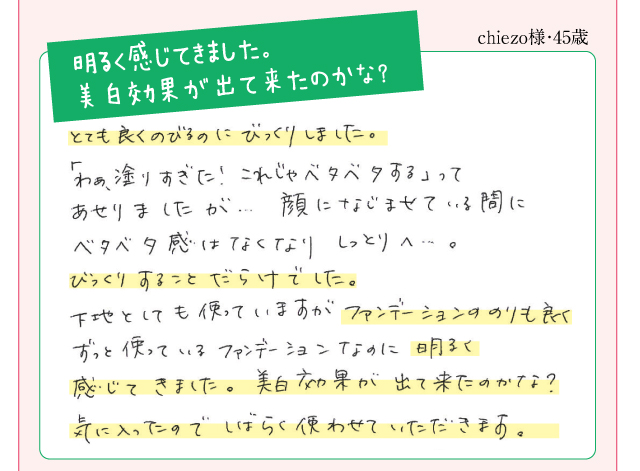 chiezo様・45歳
明るく感じてきました。
美白効果が出て来たのかな?
とても良くのびるのにびっくりしました。
「わぁ、塗りすぎた!これじゃベタベタする」って
あせりましたが… 顔になじませている間に
ベタベタ感はなくなり しっとりへ…。
びっくりすることだらけでした。
下地としても使っていますがファンデーションののりも良く
ずっと使っているファンデーションなのに明るく
感じてきました。美白効果が出て来たのかな?
気に入ったのでしばらく使わせていただきます。